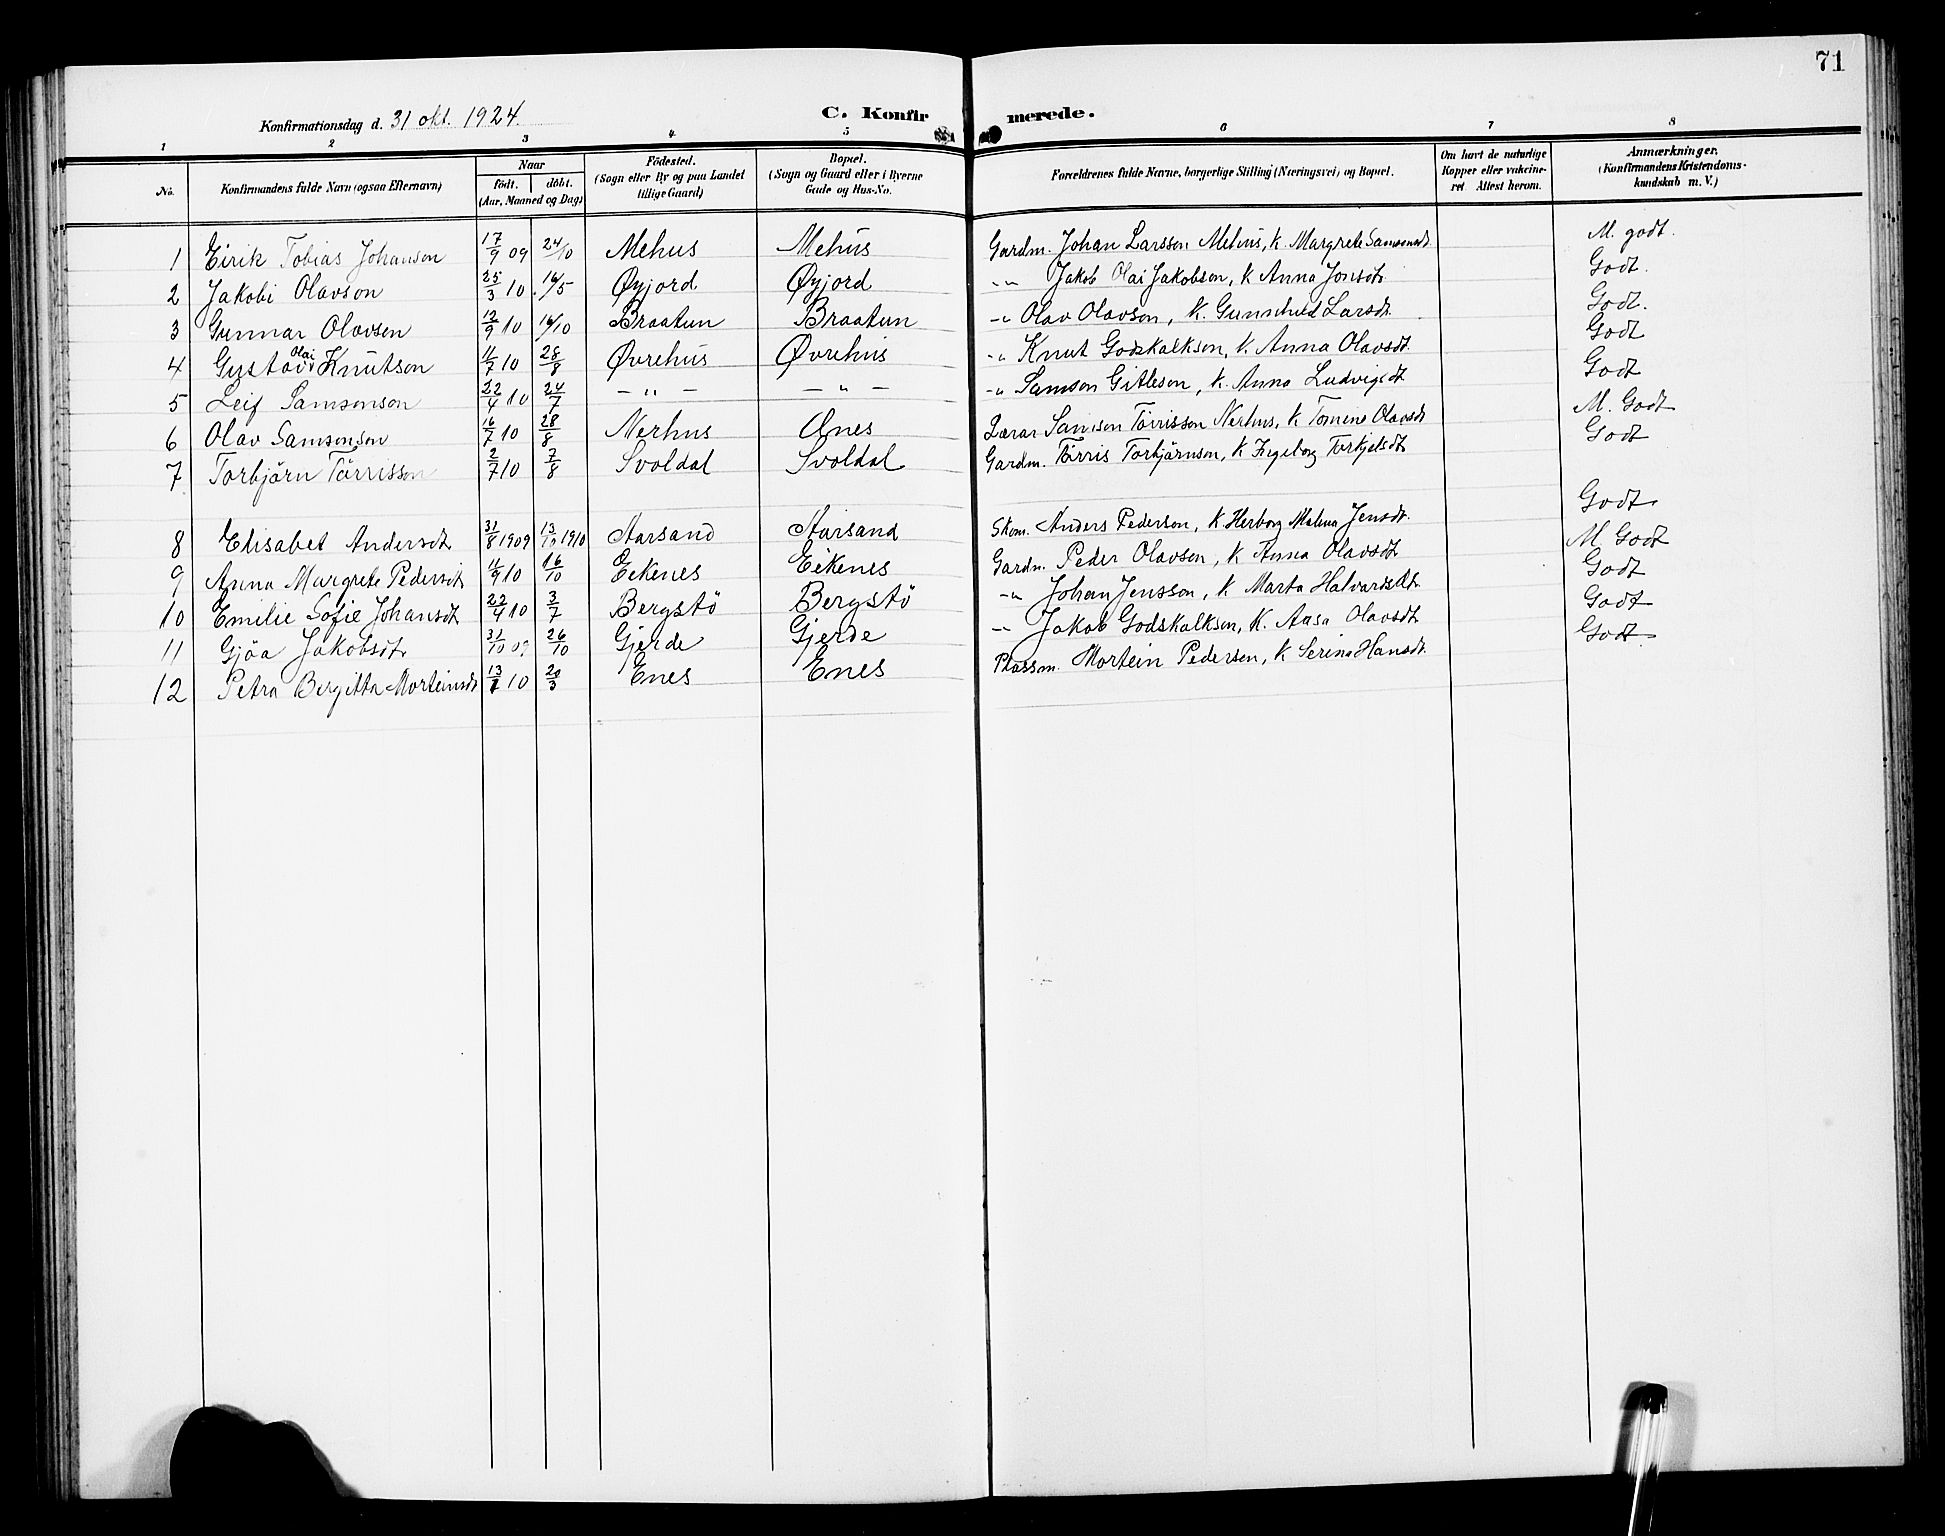 71
Konfirmationsdag d. 31 okt. 1924.
C. Konfirmerede.
1 2 3 4 5 6 7 8
No.
Konfirmandens fulde Navn (ogsaa Efternavn)
Naar
födt. döbt.
(Aar, Maaned og Dag)
Födested.
(Sogn eller By og paa Landet
tillige Gaard)
Bopæl.
(Sogn og Gaard eller i Byerne
Gade og Hus-No.
Forældrenes fulde Navne, borgerlige Stilling (Næringsvei) og Bopæl.
Om havt de naturlige
Kopper eller vakcine-
ret. Attest herom.
Anmærkninger.
(Konfirmandens Kristendoms-
kundskab m. V.)
1 Eirik Tobias Johanson 17/9 09 24/10 Mehus Mehus Gardm. Johan Larsson Mehus, K. Margrete Samsonsdt. M. godt.
2 Jakobi Olavson 25/3 10. 16/5 Øyjord Øyjord -"- Jakob Olai Jakobson, K Anna Jonsdt. Godt.
3 Gunnar Olavson 12/9 10 16/10 Braatun Braatun -" Olav Olavson, K. Gunnhild Larsdt. Godt.
4 Gustav Olai Knutson 11/7 10 28/8 Øvrehus Øvrehus -" Knut Godskalkson, K. Anna Olavsdt. Godt
5 Leif Samsonson 22/4 10 24/7 - " - - " - -" Samson Gitleson, K. Anna Ludvigsdt. Godt
6 Olav Samsonson 16/7 10 28/8 Nerhus Ænes Lærar Samson Tørrisson Nerhus, K Tomine Olavsdt. M. Godt
7 Torbjörn Törrisson 2/7 10 7/8 Svoldal Svoldal Gardm. Törris Torbjörnson, K Ingeborg Torkjelsdt. Godt
8 Elisabet Andersdt. 31/8 1909 13/10 1910 Aarsand Aarsand Skom. Anders Pederson, K Herborg Malena Jensdt. Godt.
9 Anna Margrete Pedersdt. 11/9 10 16/10 Eikenes Eikenes Gardm. Peder Olavson, K Anna Olavsdt. M Godt
10 Emilie Sofie Johansdt. 22/4 10 3/7 Bergstö Bergstö -" Johan Jensson, K. Marta Halvardsdt. Godt
11 Gjöa Jakobsdt. 31/10 09 26/10 Gjerde Gjerde -" Jakob Godskalkson, K. Aasa Olavsdt. Godt
12 Petra Bergitta Morteinsdt 13/1 10 20/3 Enes Enes Plassm. Mortein Pederson, K Serina Hansdt. Godt